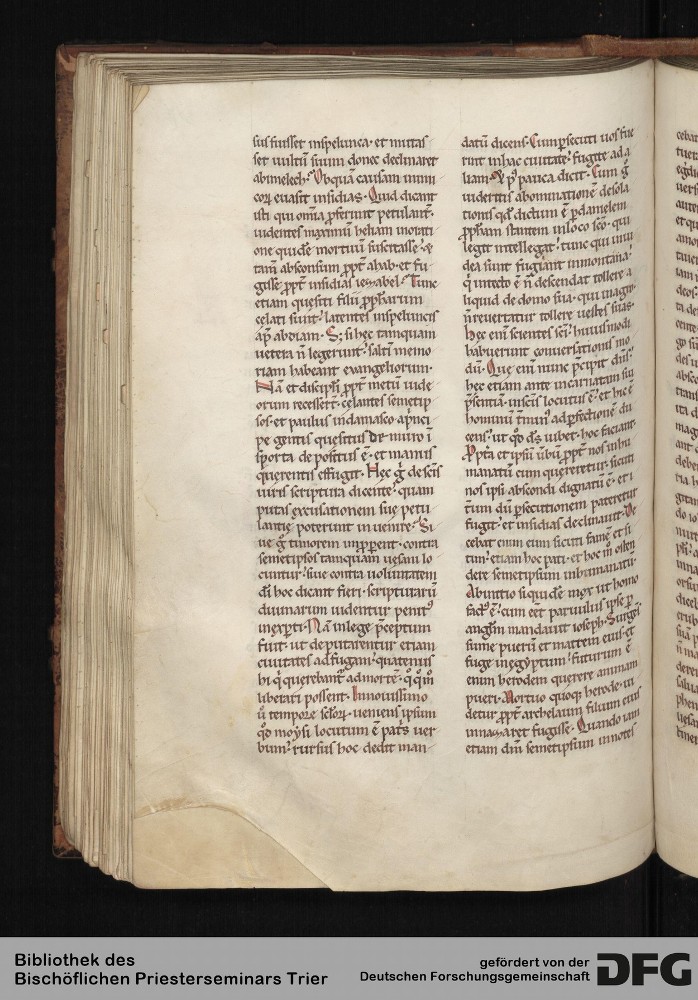 sus fuisset inspelunca· et mutas
set uultū suum donec declinaret
abimelech· Ob quā causam inimi
corꝝ euasit insidias· Quid dicant
isti qui omīa ꝓferunt petulant̄·
uidentes maximū heliam inorati
one quidē mortuū suscitasse· &
tam̄ absconsum ꝓpt̄ ahab· et fu
gisse ꝓpt̄ insidias iezabel· Tunc
etiam quesiti filii ꝓph̄arum
celati sunt· latentes inspeluncis
ap̄ abdiam· S; si hec tamquam
uetera n̄ legerunt· saltī memo
riam habeant euangeliorum·
Nā et discip̄li ꝓpt̄ metū iude
orum recesser̄t· celantes semetip
sos· et paulus indamasco ap̄nci
pe gentis quesitus de muro ī
sporta depositus ē· et manus
querentis effugit· Hec g̊ de scīs
uiris scriptura dicente· quam
putas excusationem sue petu
lantie poterunt inuenire· Si
ue g̊ timorem inꝓperent· contra
semetipsos tamquam uesani lo
cuntur· siue contra uoluntatem
dī hoc dicant fieri· scripturarū
diuinarum uidentur penit᷒
inexp̱ti· Nā inlege p̄ceptum
fuit· ut deputarentur etiam
ciuitates ad fugam· quatenus
hi q̇ querebant᷑ admortē· q̊q̊m̊
liberati possent· Innouissimo
ū tempore sc̄lorꝝ· ueniens ipsum
qd̊ moysi locutum ē pat̄s uer
bum· rursus hoc dedit man
datū dicens· Cum ꝑsecuti uos fue
rint inhac ciuitate· fugite ad a
liam· Et p᷒ pauca dicit· Cum g̊
uideritis abominationē desola
tionis qd̄ dictum ē p danielem
ꝓph̄am stantem inloco scō· qui
legit intellegat· tunc qui iniu
dea sunt fugiant inmontana·
q̇ intecto ē n̄ descendat tollere a
liquid de domo sua· qui inagro
n̄ reuertatur tollere uestes suas·
Hec enī scientes scī· huiusmodi
habuerunt conuersationis mo
dū· Que enī nunc p̄cipit dn̄s·
hec etiam ante incarnatam sui
p̄sentiā· inscīs locutus ē· et hic ē
hominū t̄minus ad ꝑfectionē du
cens· ut qd̊ ds̄ iubet· hoc faciant·
Ppt̄a et ipsū ūbū ꝓpt̄ nos inhu
manatū cum quereretur· sicuti
nos ipsi abscondi dignatū ē· et i
t̄um dū ꝑsecutionem pateretur
fugit· et insidias declinauit· De
cebat enim eum sicuti famē et si
tim· etiam hoc pati· et hoc m̊ osten
dere semetipsum inhumanatū·
Abinitio siquidē mox ut homo
fact᷒ ē· cum eēt paruulus ipse ꝑ
angl̄m mandauit ioseph· Surge·
sume puerū et matrem eius· et
fuge inegyptum· futurum ē
enim herodem querere animam
pueri· Mortuo quoq; herode· ui
detur ꝓpt̄ archelaum filium eius
innazaret fugisse· Quando iam
etiam dm̄ semetipsum innotes
Bibliothek des
Bischöflichen Priesterseminars Trier
gefördert von der
Deutschen Forschungsgemeinschaft
DFG